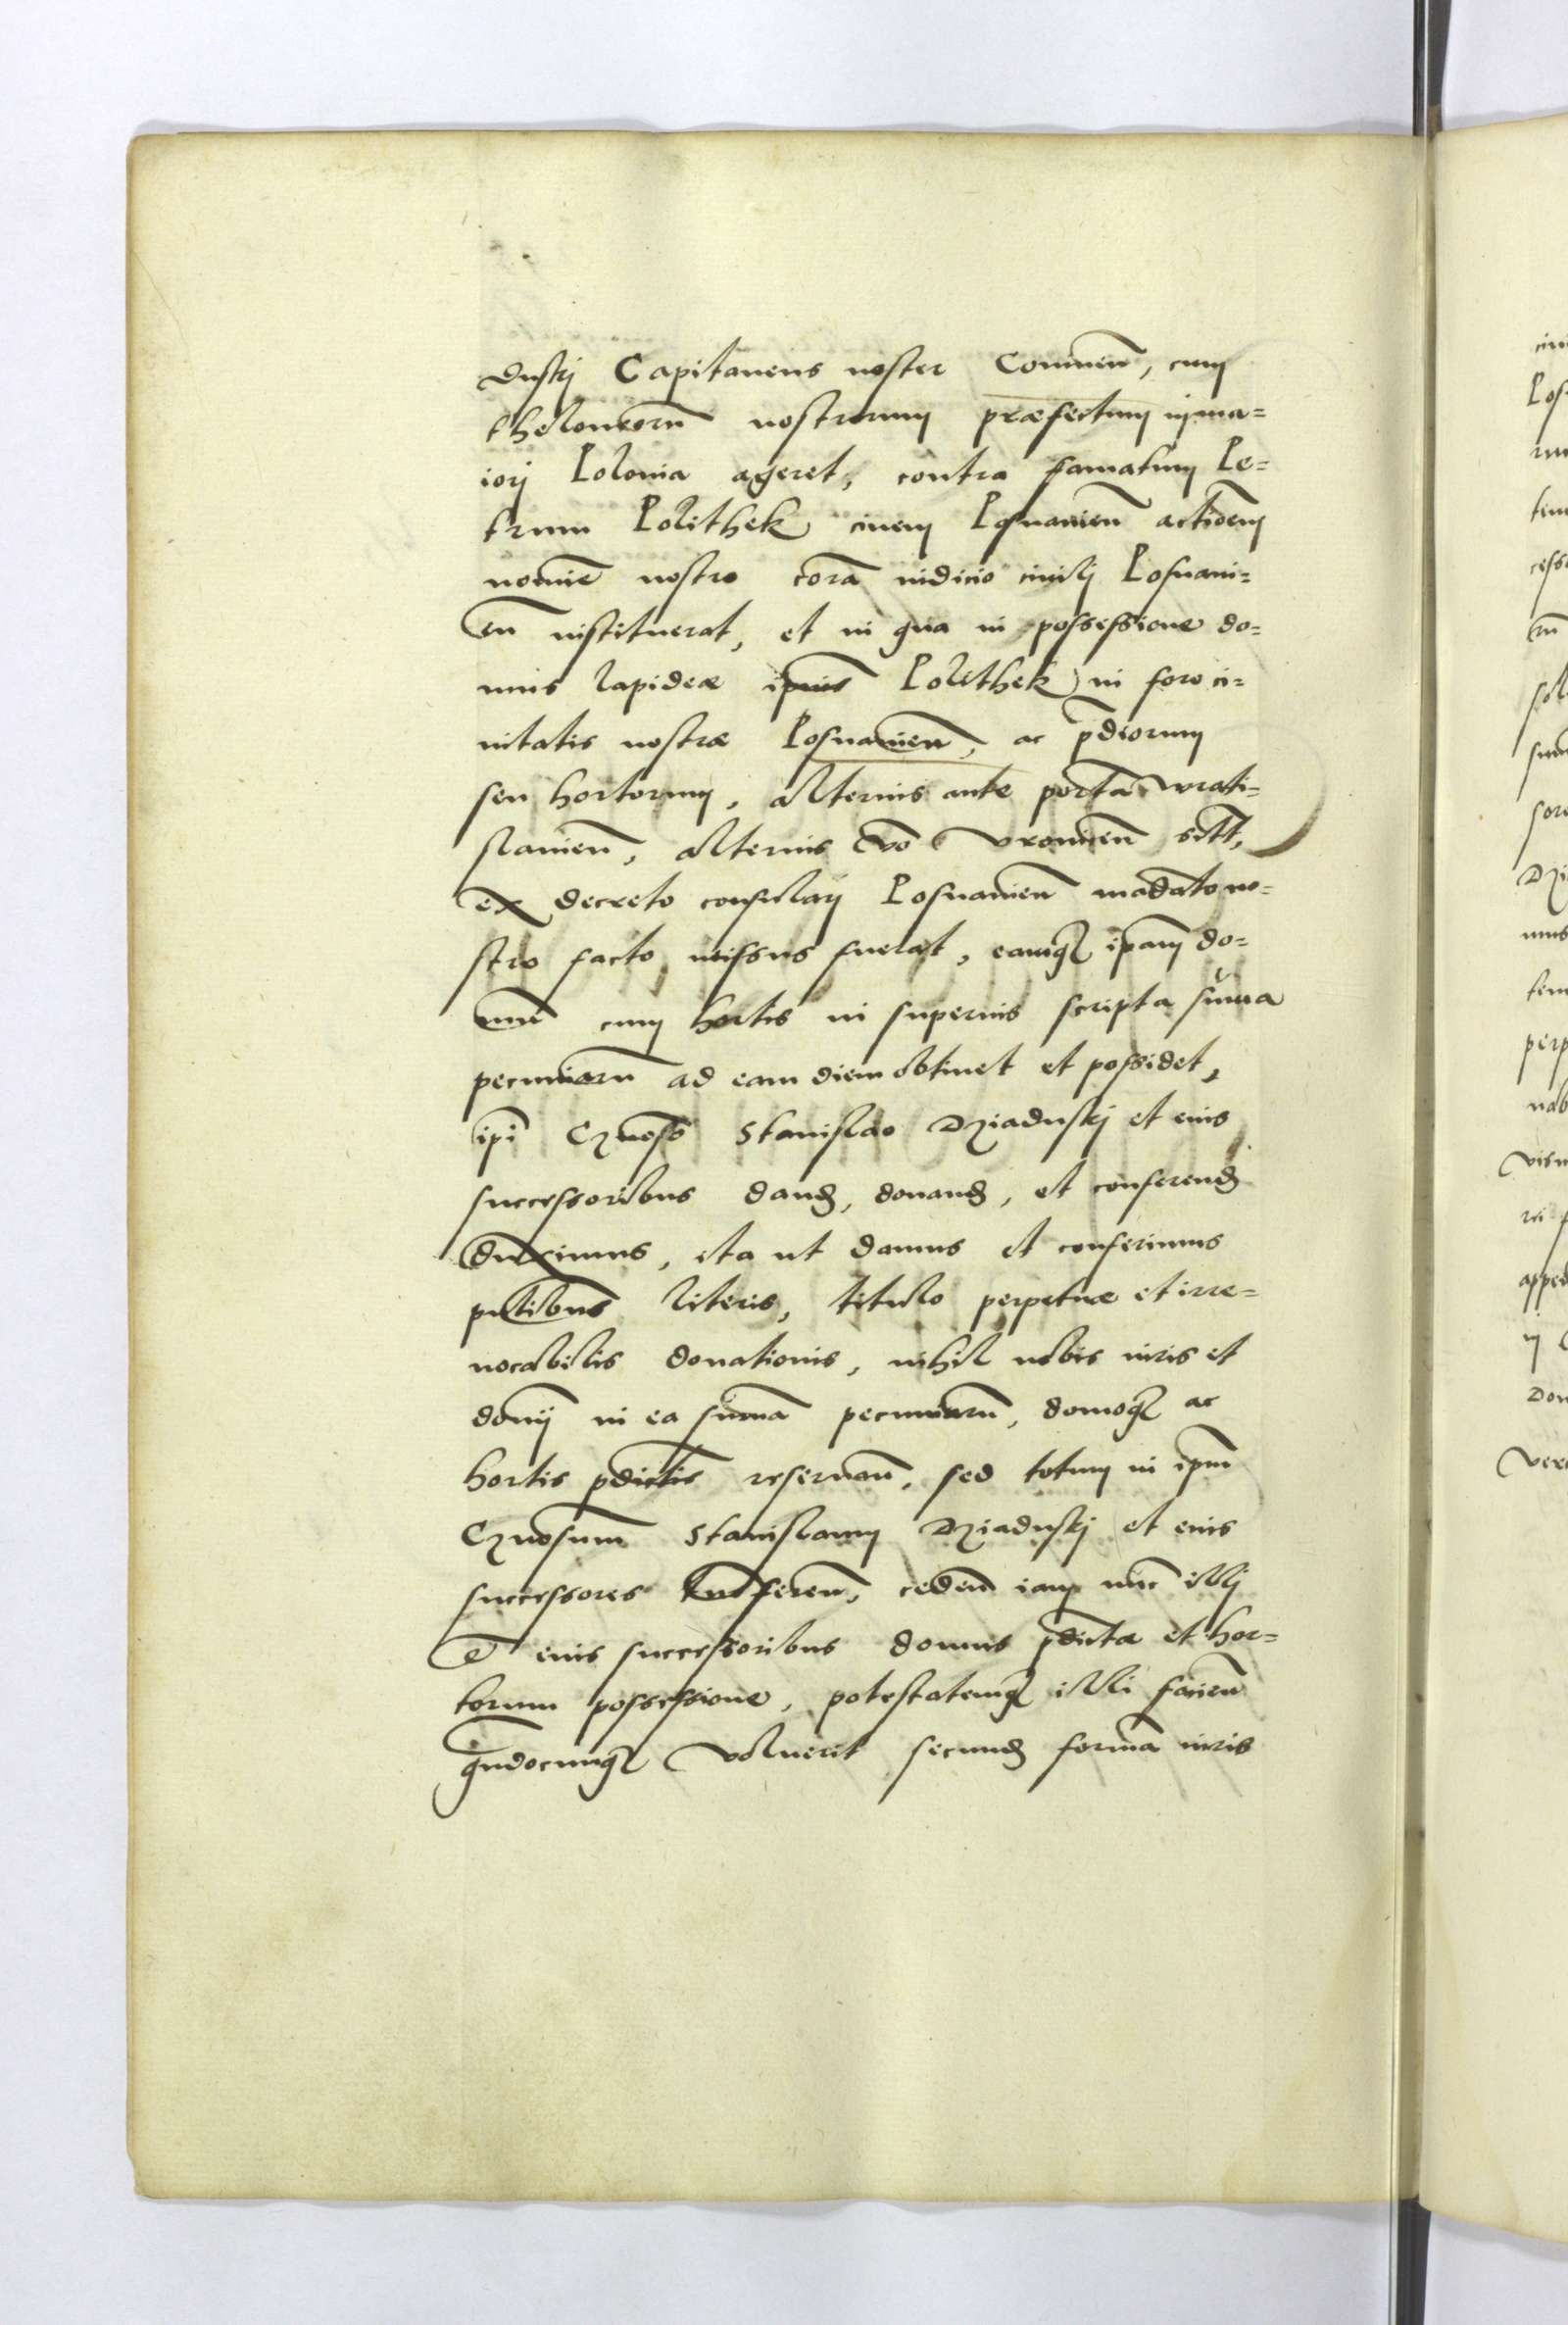 duskj Capitaneus noster Coninen̄, cum
theloneorū nostrorum præfectum in ma=
iorj Polonia ageret, contra famatum Pe=
trum Polithek ciuem Posnanien̄ actioēm
nomīe nostro corā iudicio ciuilj Posnani=
en̄ instituerat, et in qua in possessione do=
mus lapideæ ipīus Polithek in foro ci=
uitatis nostræ Posnanien̄, ac p̄diorum
seu hortorum, alterius ante portā wrati=
slauien̄, alterius v̄o vronien̄ sitī,
ex decreto consularj Posnanien̄ mādato no=
stro facto, missus fuerat, eamq; ipām do=
mū cum hortis in superius scripta sūma
pecuniarū ad eam diem obtinet et possidet,
ipī Gn̄oso Stanislao Dziaduskj et eius
successoribus dand, donand, et conferend
duximus, ita ut damus et conferimus
pn̄tibus literis, titulo perpetuæ et irre=
uocabilis donationis, nihil nobis iuris et
domīj in ea sūmā pecuniarū, domoq; ac
hortis p̄dictis reseruan̄, sed totum in ipm̄
Gn̄osum Stanislaum Dziaduskj et eius
successores transferen̄, ceden̄ iam nūc illj
et eius successoribus domus p̄dictæ et hor=
torum possessione, potestatemq; illi facien̄
qn̄documq; voluerit secund formā iuris